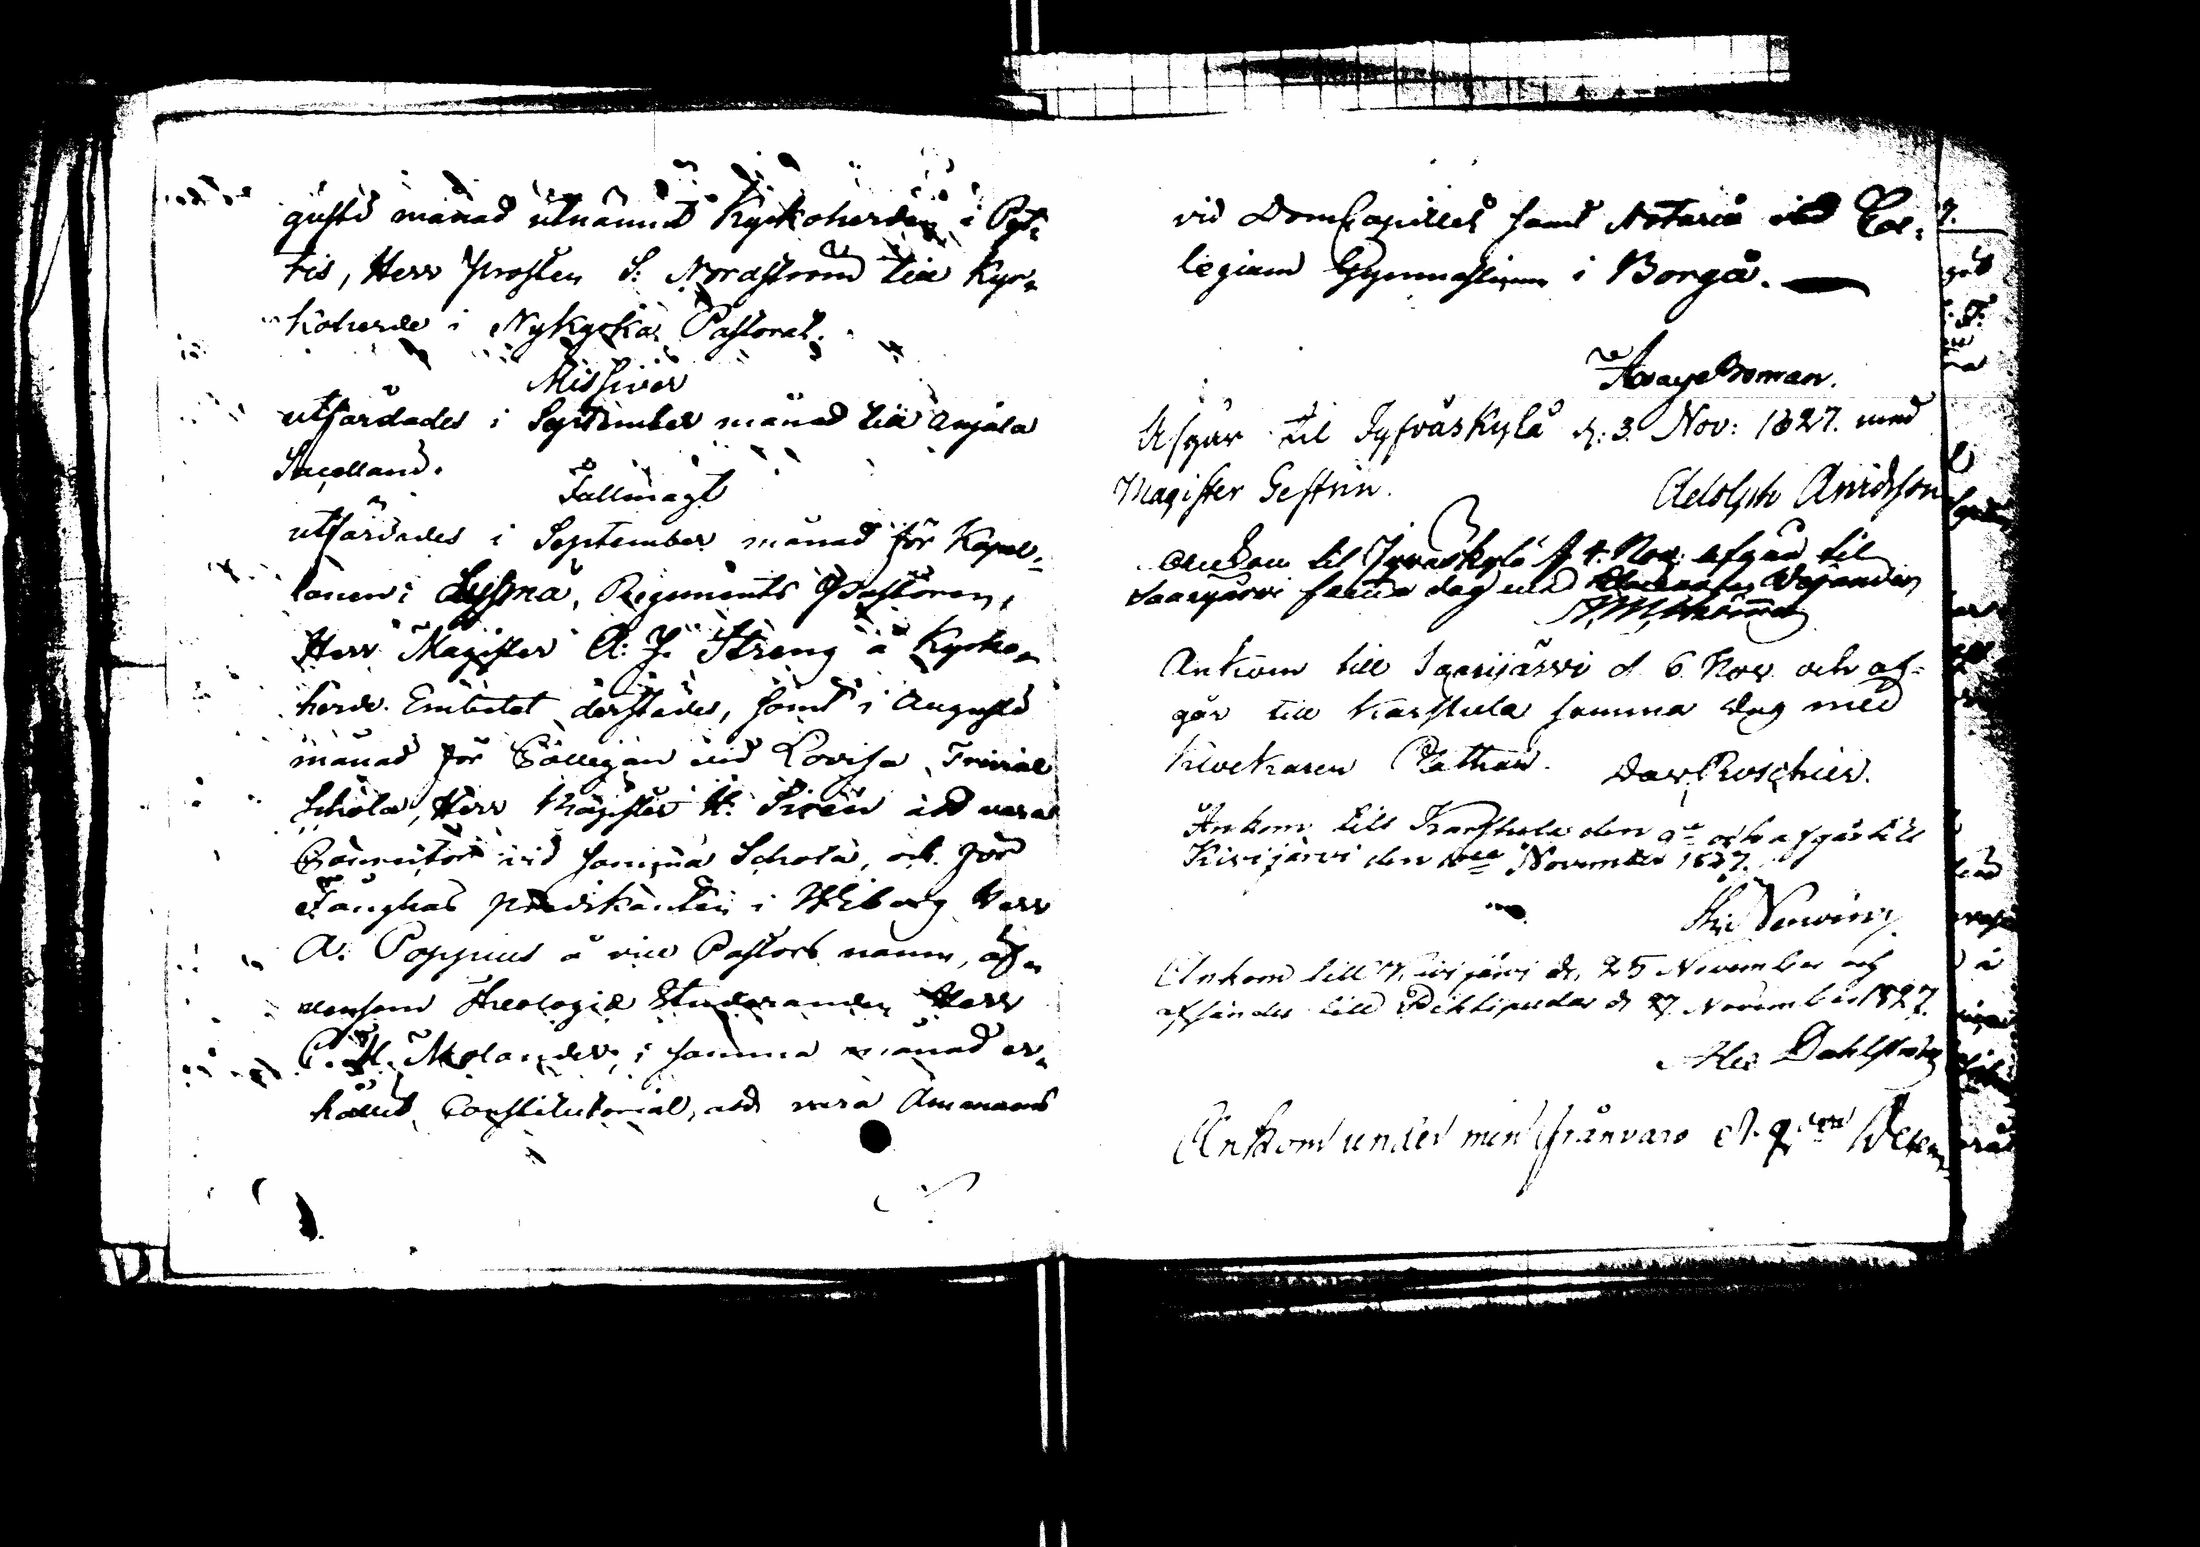 gusti månad utnämnd Kyrkoherden i Pyt-
tis, Herr Prosten S: Nordström till Kyr-
koherde i Nykyrka Pastorat.
Missiver
utfärdades i September månad till Anjala
Sacelland.
Fullmagt
utfärdades i September månad för Kapel-
lanen i Sysmä, Regiments Pastoren,
Herr Magister A: J. Streng å Kyrko-
herde Embetet derstädes, samt i Augusti
månad för Collegan vid Lovisa Trivial
Schola, Herr Magister H: Sirén att vara
Conrector vid samma Schola, och för
Fånghus predikanten i Wiborg Herr
A: Poppius å vice Pastors namn, äf-
vensom Theologiæ Studeranden Herr
C. H. Molander, i samma månad er-
hållit Constitutorial, att vara Amanuens
vid DomCapitlet samt Notarie vid Col-
legium Gymnasticum i Borgå.
Boman.
Afgår til Jyfväskylä d: 3. Nov: 1827. med
Magister Gestrin. Adolph Anidsson
Ankom til Jyväskylä d 4. Nov: afgår til
Saarijärvi samma dag med
Ankom till Saarijärvi d 6. Nov. och af-
går till Karstula samma dag med
Klockaren Dav. Roschier.
Ankom till Karstula den 9de och afgår till
Kivijärvi den November 1827.
Ankom till Kivijärvi d. 25 November och
afsändes till Pihtipudas d 27 November 1827.
Alex Dahlström
Ankom under min frånvaro d.